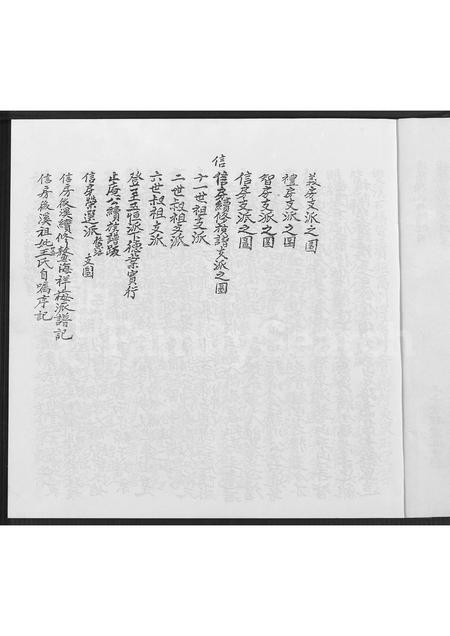 義房支派之圖
禮房支派之圖
智房支派之圖
信房支派之圖
信
信房續修譜支派之圖
十一世祖支派
二世叔祖支派
六世叔祖支派
登至五恒派下德業實行
止庵公續修譜跋
信房榮選派 支圖
信房後溪續修 海祥梅派譜記
信房後溪祖妣王氏自嘱序記
FamilySearch